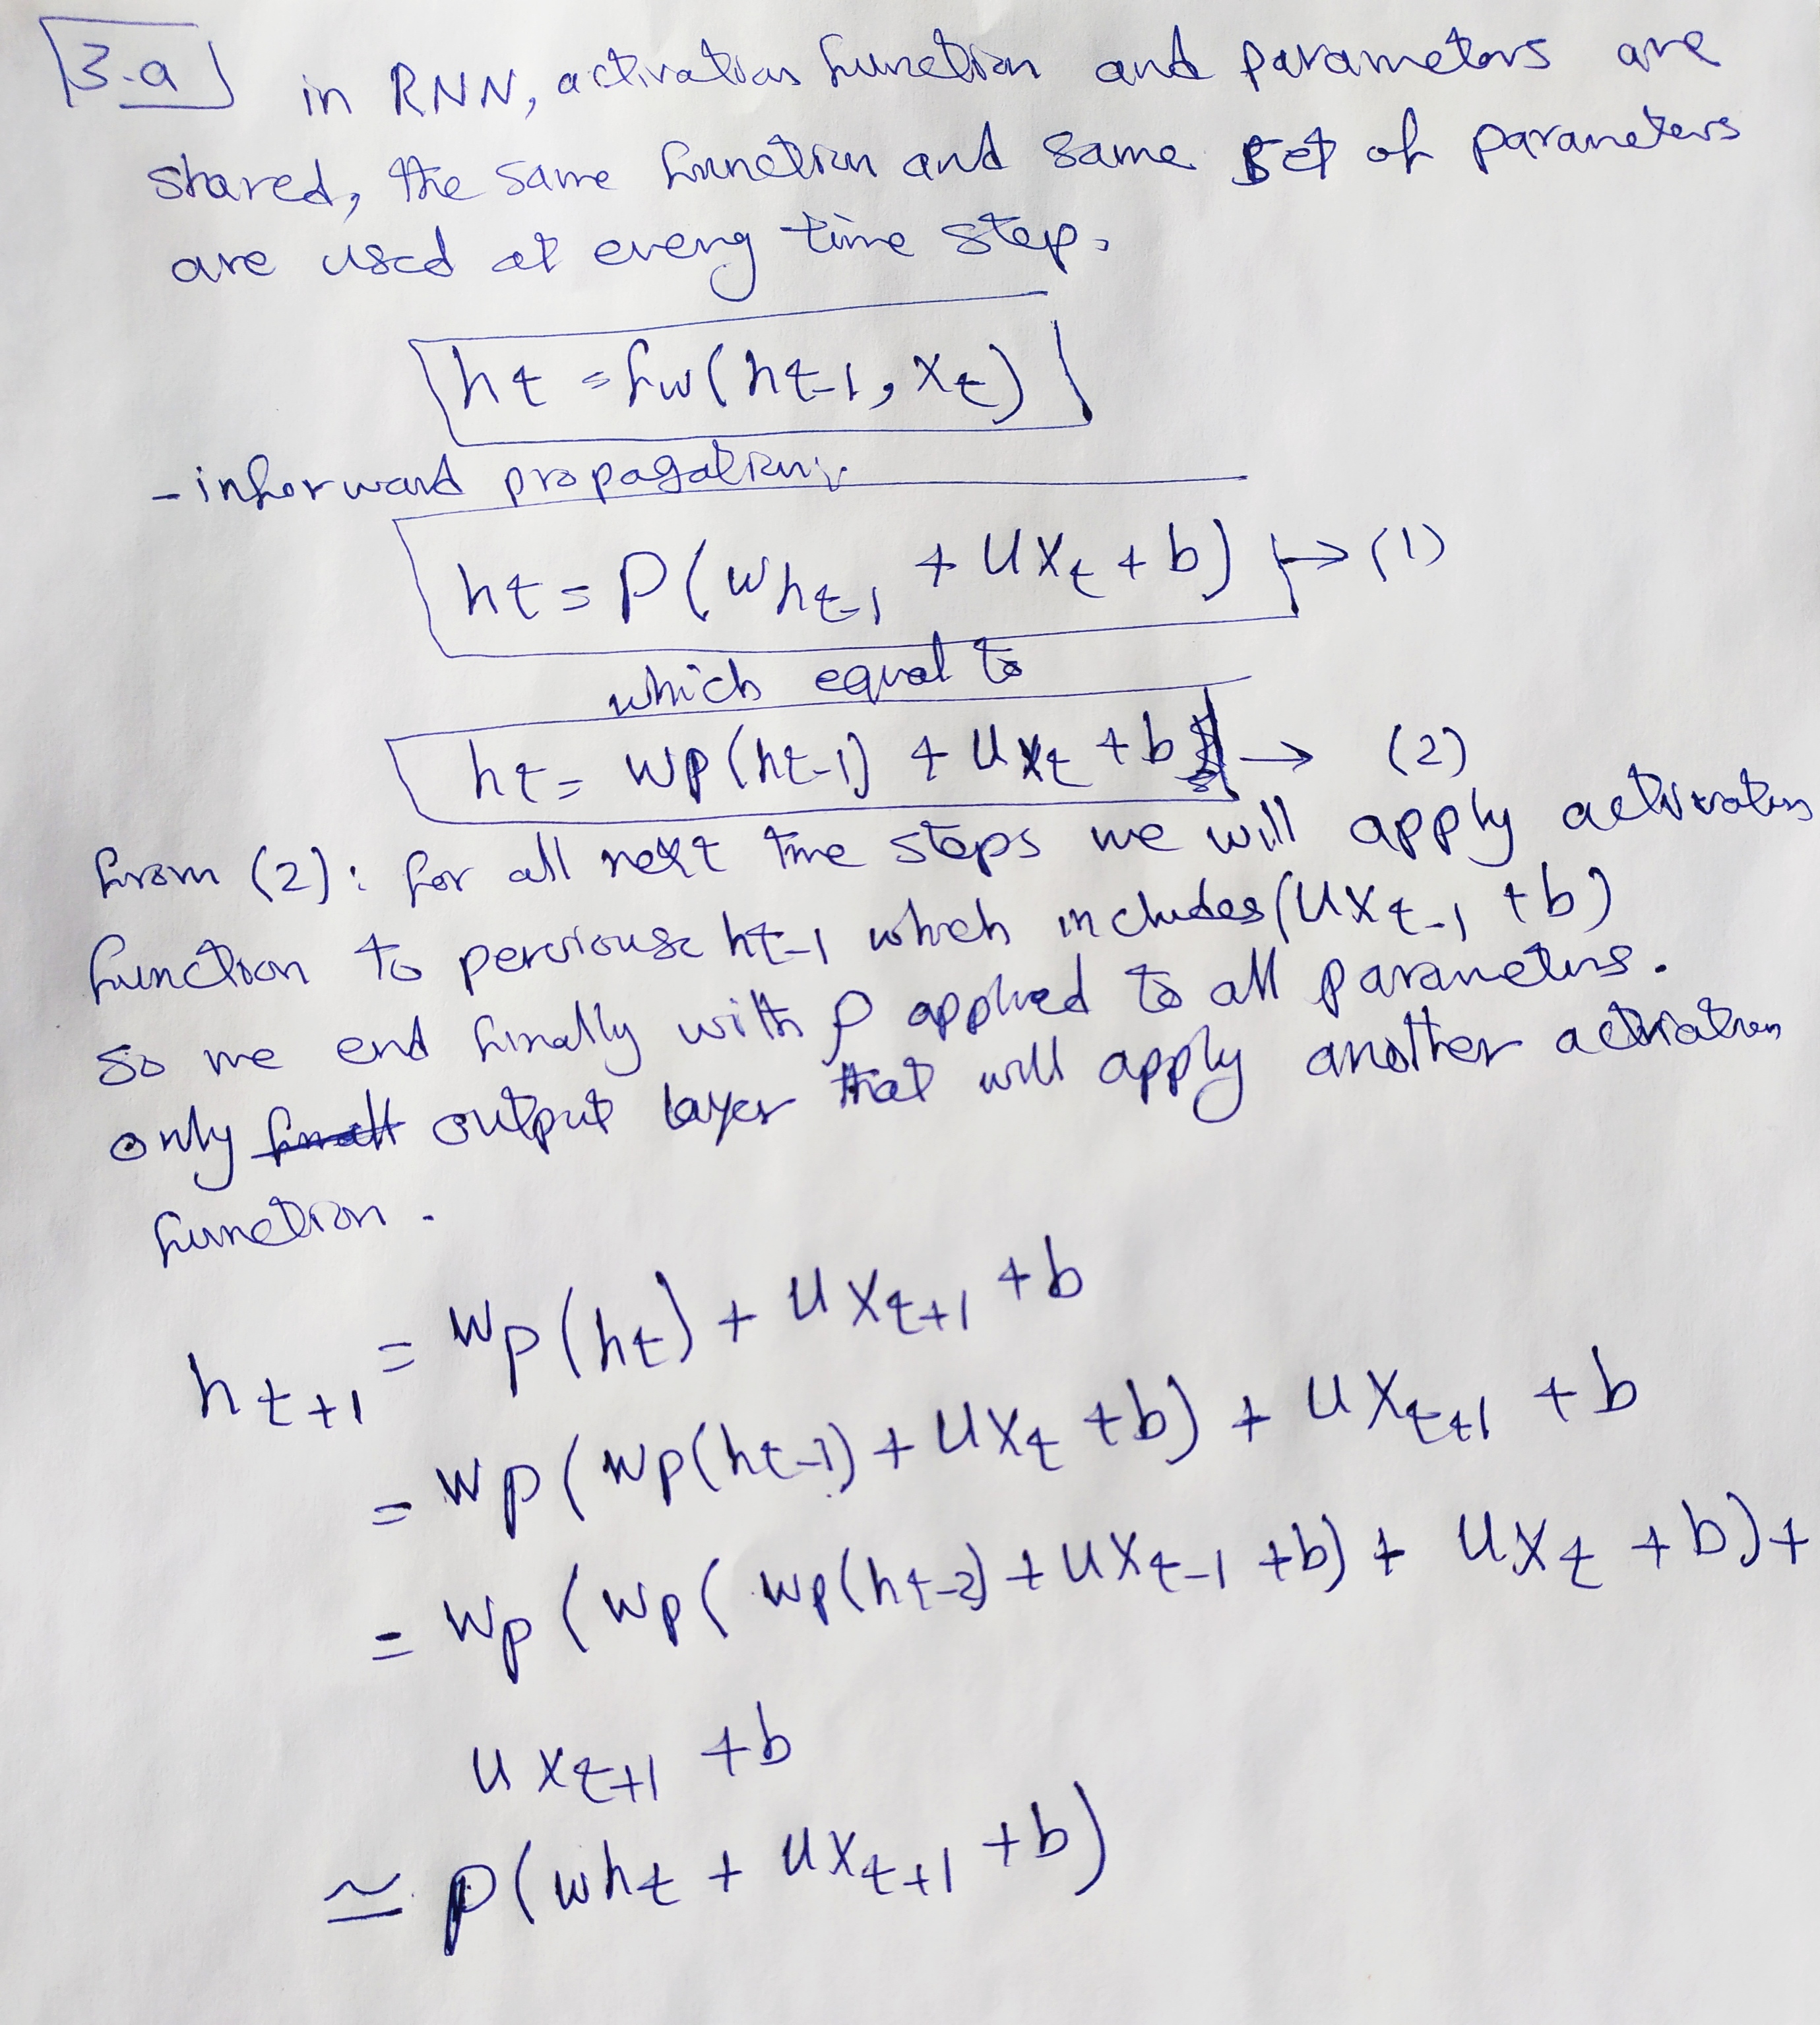 3.a in RNN, activation function and parameters are
shared, the same function and same set of parameters
are used at every time step.
ht = fw(ht-1, xt)
- inforward propagation:
ht = ρ(wht-1 + Uxt + b) → (1)
which equal to
ht = wρ(ht-1) + Uxt + b → (2)
from (2): for all next time steps we will apply activation
function to perviouse ht-1 which includes (Uxt-1 + b)
so we end finally with ρ applied to all parameters.
only output layer that will apply another activation
function.
ht+1 = wρ(ht) + Uxt+1 + b
= wρ(wρ(ht-1) + Uxt + b) + Uxt+1 + b
= wρ(wρ(wρ(ht-2) + Uxt-1 + b) + Uxt + b) +
Uxt+1 + b
≃ ρ(wht + Uxt+1 + b)